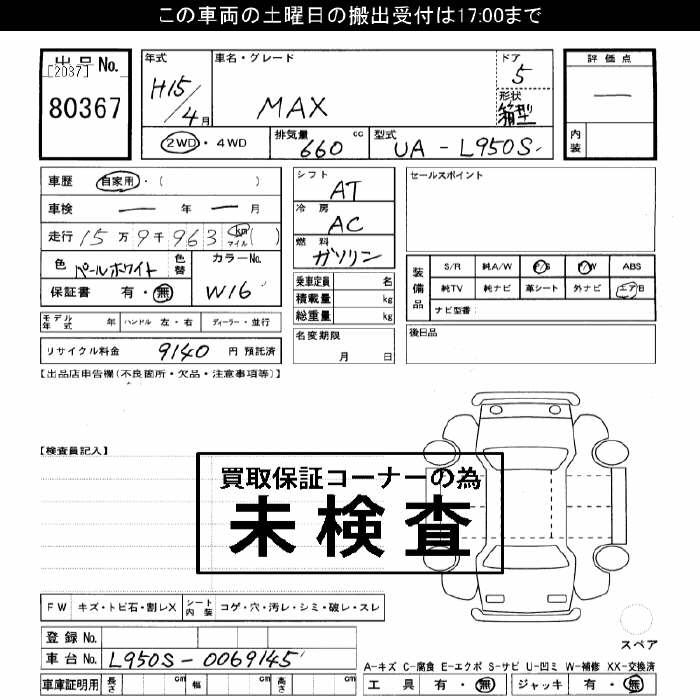 この車両の土曜日の搬出受付は17:00まで
出品No.
[2037]
80367
年式
H15/4月
車名・グレード
MAX
ドア
5
形状
箱型
評価点
―
内装
2WD・4WD
排気量
660 cc
型式
UA-L950S
車歴 自家用・( )
車検 ― 年 ― 月
走行 15万9千963 km マイル ( )
色 パールホワイト 色替
カラーNo.
W16
保証書 有・無
モデル年式 年 ハンドル 左・右 ディーラー・並行
リサイクル料金 9140 円 預託済
シフト
AT
冷房
AC
燃料
ガソリン
乗車定員 名
積載量 kg
総重量 kg
名変期限
月 日
セールスポイント
装備品
S/R 純A/W P/S P/W ABS
純TV 純ナビ 革シート 外ナビ エアB
ナビ型番:
後日品
【出品店申告欄(不良箇所・欠品・注意事項等)】
【検査員記入】
買取保証コーナーの為
未検査
FW キズ・トビ石・割レX シート内装 コゲ・穴・汚レ・シミ・破レ・スレ
登録No.
車台No. L950S-0069145
車庫証明用 長さ cm 幅 cm 高さ cm
スペア
A-キズ C-腐食 E-エクボ S-サビ U-凹ミ W-補修 XX-交換済
工具 有・無 ジャッキ 有・無